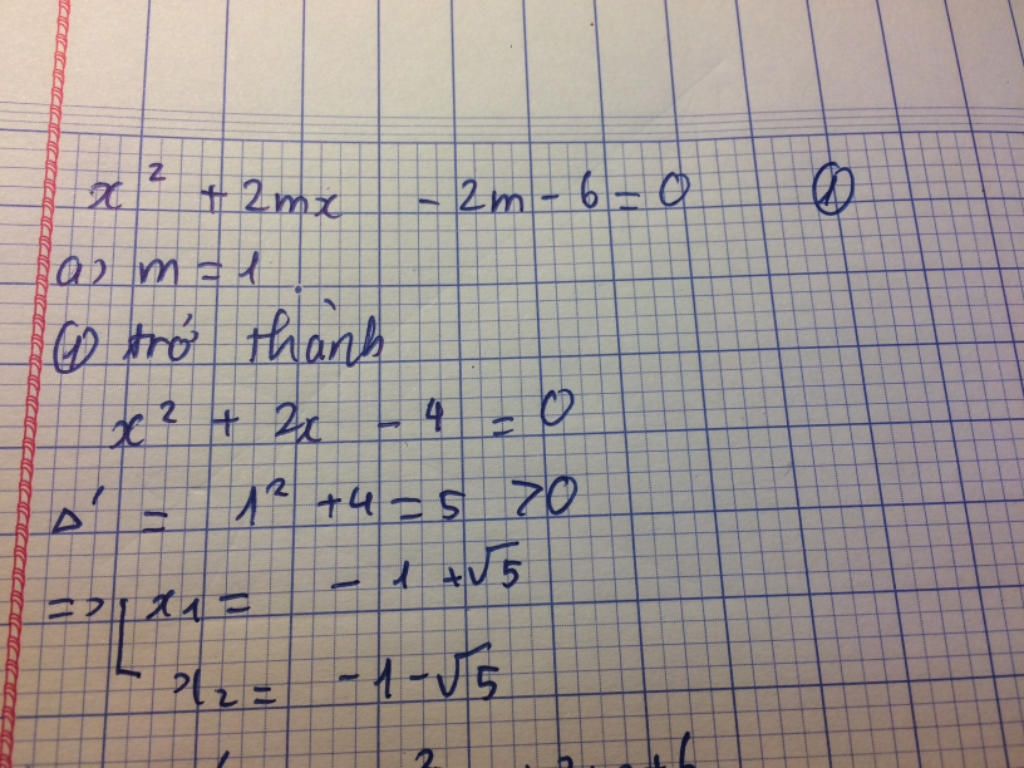 x² + 2mx - 2m - 6 = 0 ①
a) m = 1
① trở thành
x² + 2x - 4 = 0
Δ' = 1² + 4 = 5 > 0
=> [ x1 = - 1 + √5
x2 = - 1 - √5